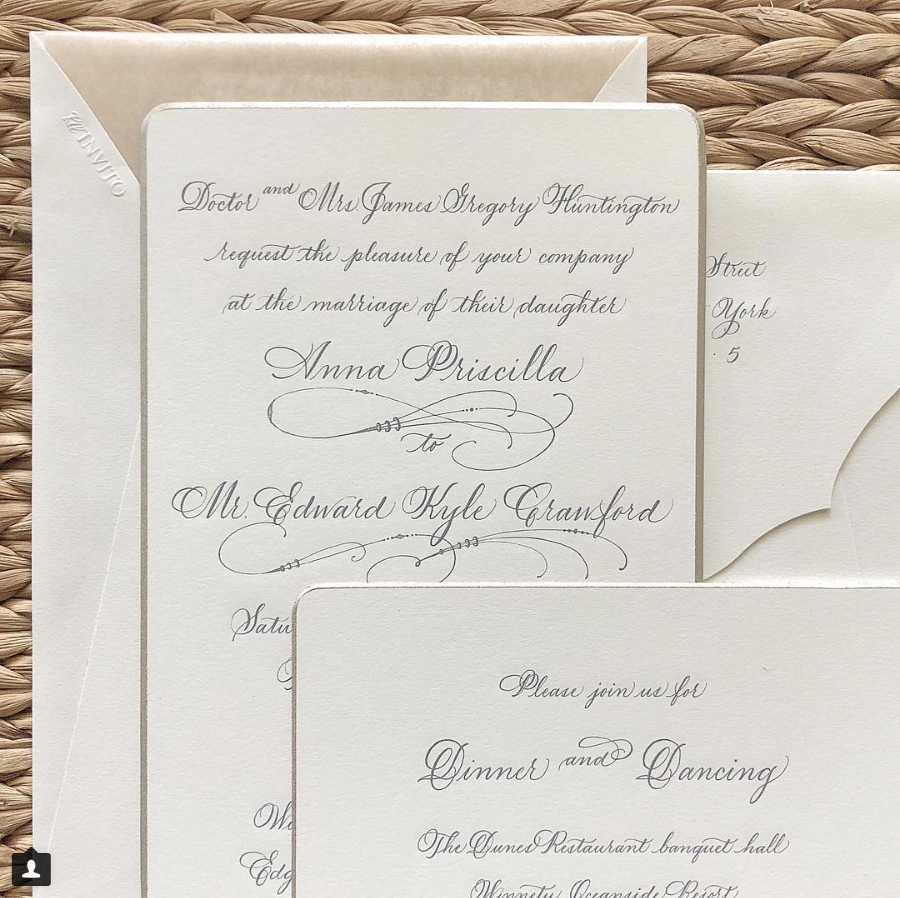 INVITO
Doctor and Mrs James Gregory Huntington
request the pleasure of your company
at the marriage of their daughter
Anna Priscilla
to
Mr. Edward Kyle Crawford
Street
York
5
Please join us for
Dinner and Dancing
The Dunes Restaurant banquet hall
Winnetu Oceanside Resort